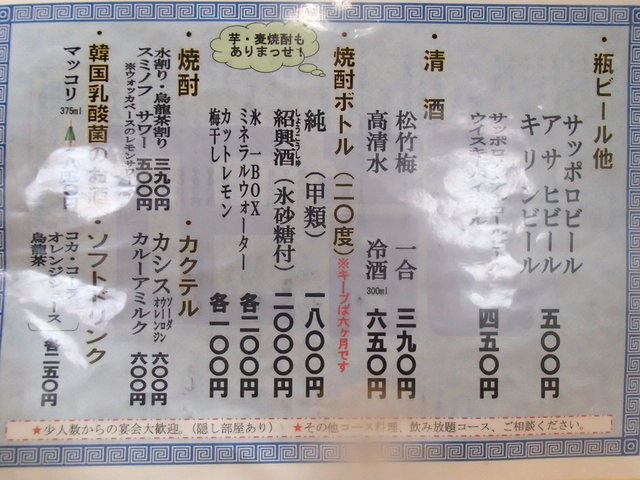 ・瓶ビール他
サッポロビール
アサヒビール
キリンビール 五〇〇円
サッポロ
ウイスキー 四五〇円
・清酒
松竹梅 一合 三九〇円
高清水 冷酒 300ml 六五〇円
・焼酎ボトル（二〇度）※キープは六ヶ月です
純（甲類） 一八〇〇円
紹興酒（氷砂糖付） 二〇〇〇円
しょうこうしゅ
氷 一BOX
ミネラルウォーター 各二〇〇円
カットレモン
梅干し 各一〇〇円
芋・麦焼酎も
ありまっせ！
・焼酎
水割り・烏龍茶割り 三九〇円
スミノフ サワー 五〇〇円
※ウォッカベースのレモンサワー
・カクテル
カシス ソーダ ウーロン オレンジ 六〇〇円
カルーアミルク 六〇〇円
・韓国乳酸菌のお酒
マッコリ 375ml
・ソフトドリンク
コカ・コーラ
オレンジジュース
烏龍茶 各二五〇円
★少人数からの宴会大歓迎。（隠し部屋あり） ★その他コース料理、飲み放題コース、ご相談ください。